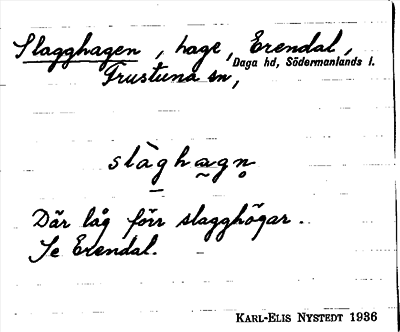 Slagghagen, hage, Erendal,
Daga hd, Södermanlands l.
Frustuna sn,
slàghagn
Där låg förr slagghögar.
Se Erendal.
KARL-ELIS NYSTEDT 1936